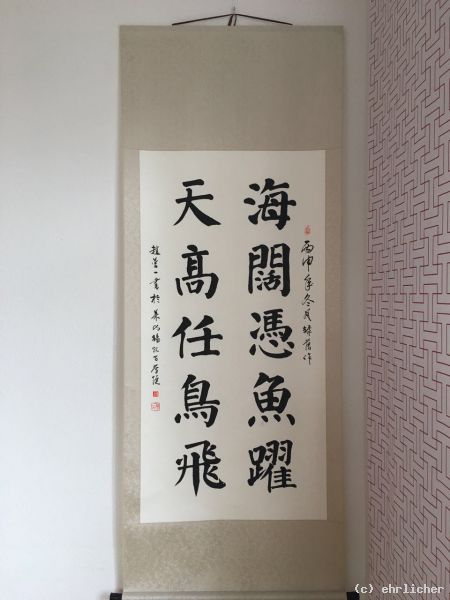 丙申年冬月
海闊憑魚躍
天高任鳥飛
(c) ehrlicher